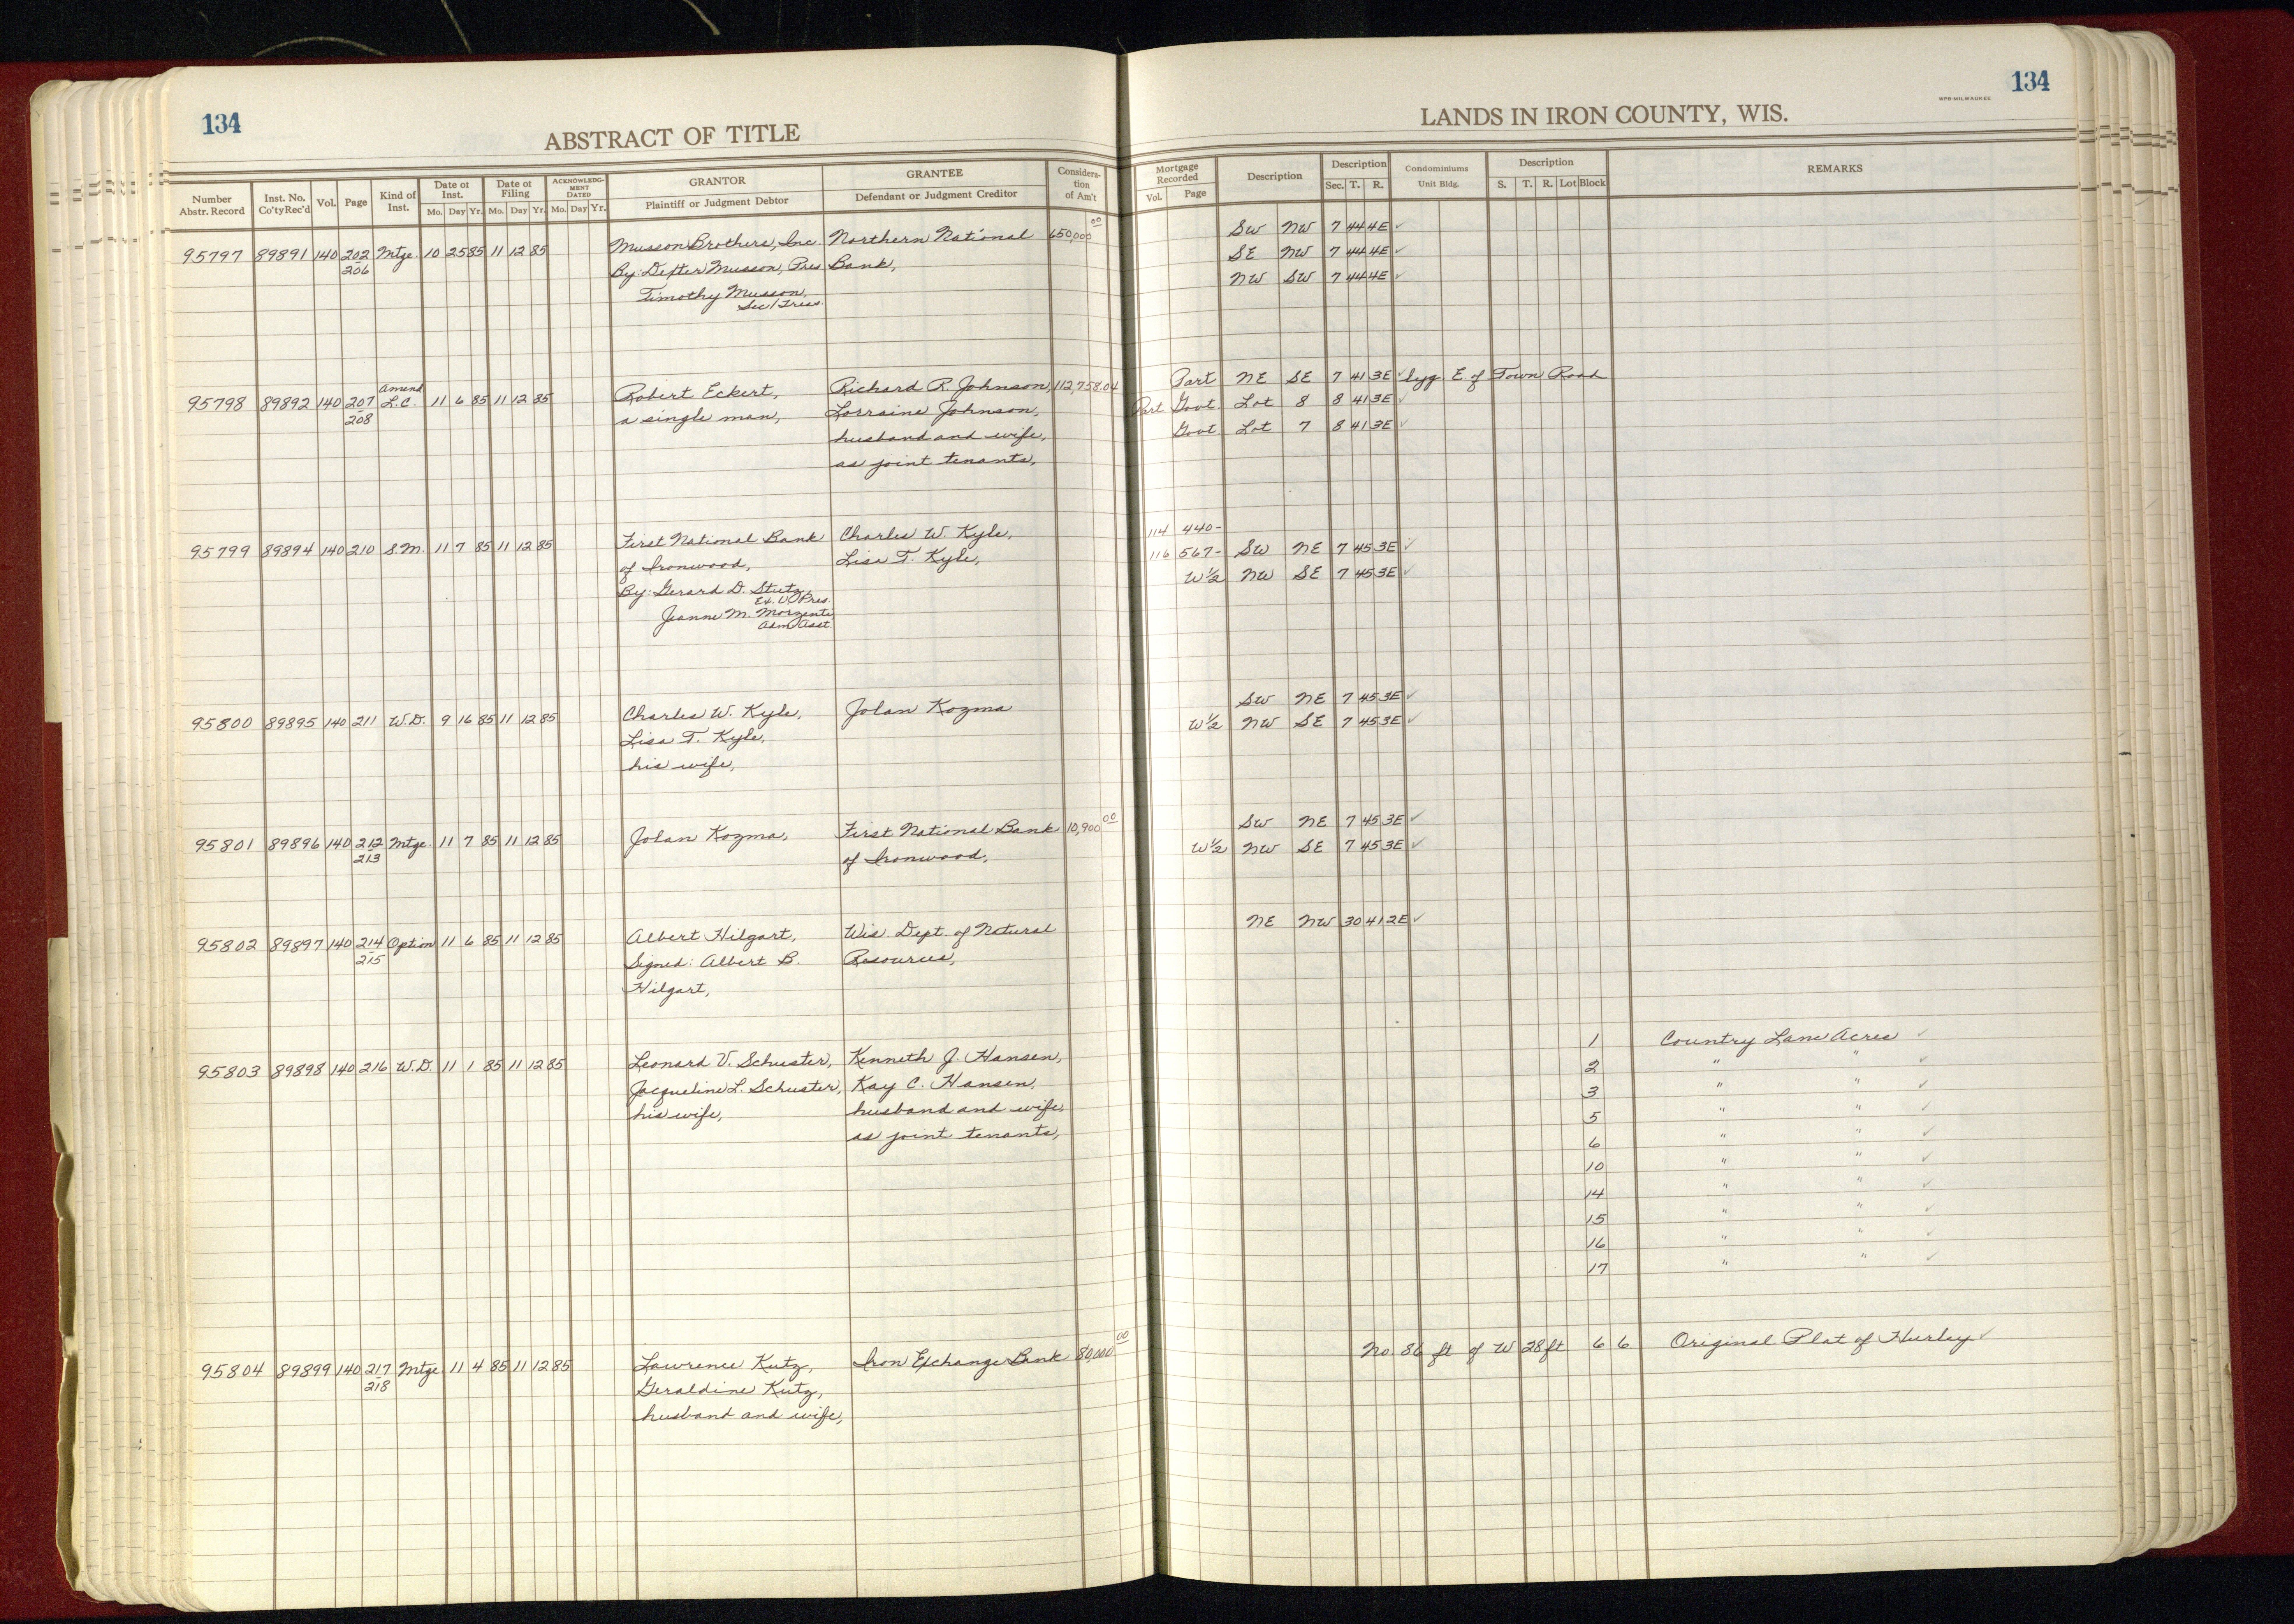 134
ABSTRACT OF TITLE
Number Abstr. Record Inst. No. Co'ty Rec'd Vol. Page Kind of Inst. Date of Inst. Mo. Day Yr. Date of Filing Mo. Day Yr. ACKNOWLEDG-MENT DATED Mo. Day Yr. GRANTOR Plaintiff or Judgment Debtor GRANTEE Defendant or Judgment Creditor Considera-tion of Am't
95797 89891 140 202 Mtge. 10 25 85 11 12 85 Musson Brothers, Inc. Northern National 650,000 00
206 By: Dexter Musson, Pres Bank,
Timothy Musson,
Sec/Treas.
Amend
95798 89892 140 207 L.C. 11 6 85 11 12 85 Robert Eckert, Richard R. Johnson, 112,758.04
208 a single man, Lorraine Johnson,
husband and wife,
as joint tenants,
95799 89894 140 210 S.M. 11 7 85 11 12 85 First National Bank Charles W. Kyle,
of Ironwood, Lisa T. Kyle,
By: Gerard D. Stutz,
Ex. V. Pres.
Jeanne M. Morzenti
Adm. Asst.
95800 89895 140 211 W.D. 9 16 85 11 12 85 Charles W. Kyle, Jolan Kozma
Lisa T. Kyle,
his wife,
95801 89896 140 212 Mtge. 11 7 85 11 12 85 Jolan Kozma, First National Bank 10,900 00
213 of Ironwood,
95802 89897 140 214 Option 11 6 85 11 12 85 Albert Hilgart, Wis. Dept. of Natural
215 Signed: Albert B. Resources,
Hilgart,
95803 89898 140 216 W.D. 11 1 85 11 12 85 Leonard V. Schuster, Kenneth J. Hansen,
Jacqueline L. Schuster, Kay C. Hansen,
his wife, husband and wife,
as joint tenants,
95804 89899 140 217 Mtge. 11 4 85 11 12 85 Lawrence Kutz, Iron Exchange Bank 80,000 00
218 Geraldine Kutz,
husband and wife,
134
WPB-MILWAUKEE
LANDS IN IRON COUNTY, WIS.
Mortgage Recorded Vol. Page Description Description Sec. T. R. Condominiums Unit Bldg. Description S. T. R. Lot Block REMARKS
SW NW 7 44 4E ✓
SE NW 7 44 4E ✓
NW SW 7 44 4E ✓
Part NE SE 7 41 3E ✓ lyg E. of Town Road
Part Govt Lot 8 8 41 3E ✓
Govt Lot 7 8 41 3E ✓
114 440-
116 567- SW NE 7 45 3E ✓
W½ NW SE 7 45 3E ✓
SW NE 7 45 3E ✓
W½ NW SE 7 45 3E ✓
SW NE 7 45 3E ✓
W½ NW SE 7 45 3E ✓
NE NW 30 41 2E ✓
1 Country Lane Acres ✓
2 " " ✓
3 " " ✓
5 " " ✓
6 " " ✓
10 " " ✓
14 " " ✓
15 " " ✓
16 " " ✓
17 " " ✓
No 86 ft of W 28 ft 6 6 Original Plat of Hurley ✓